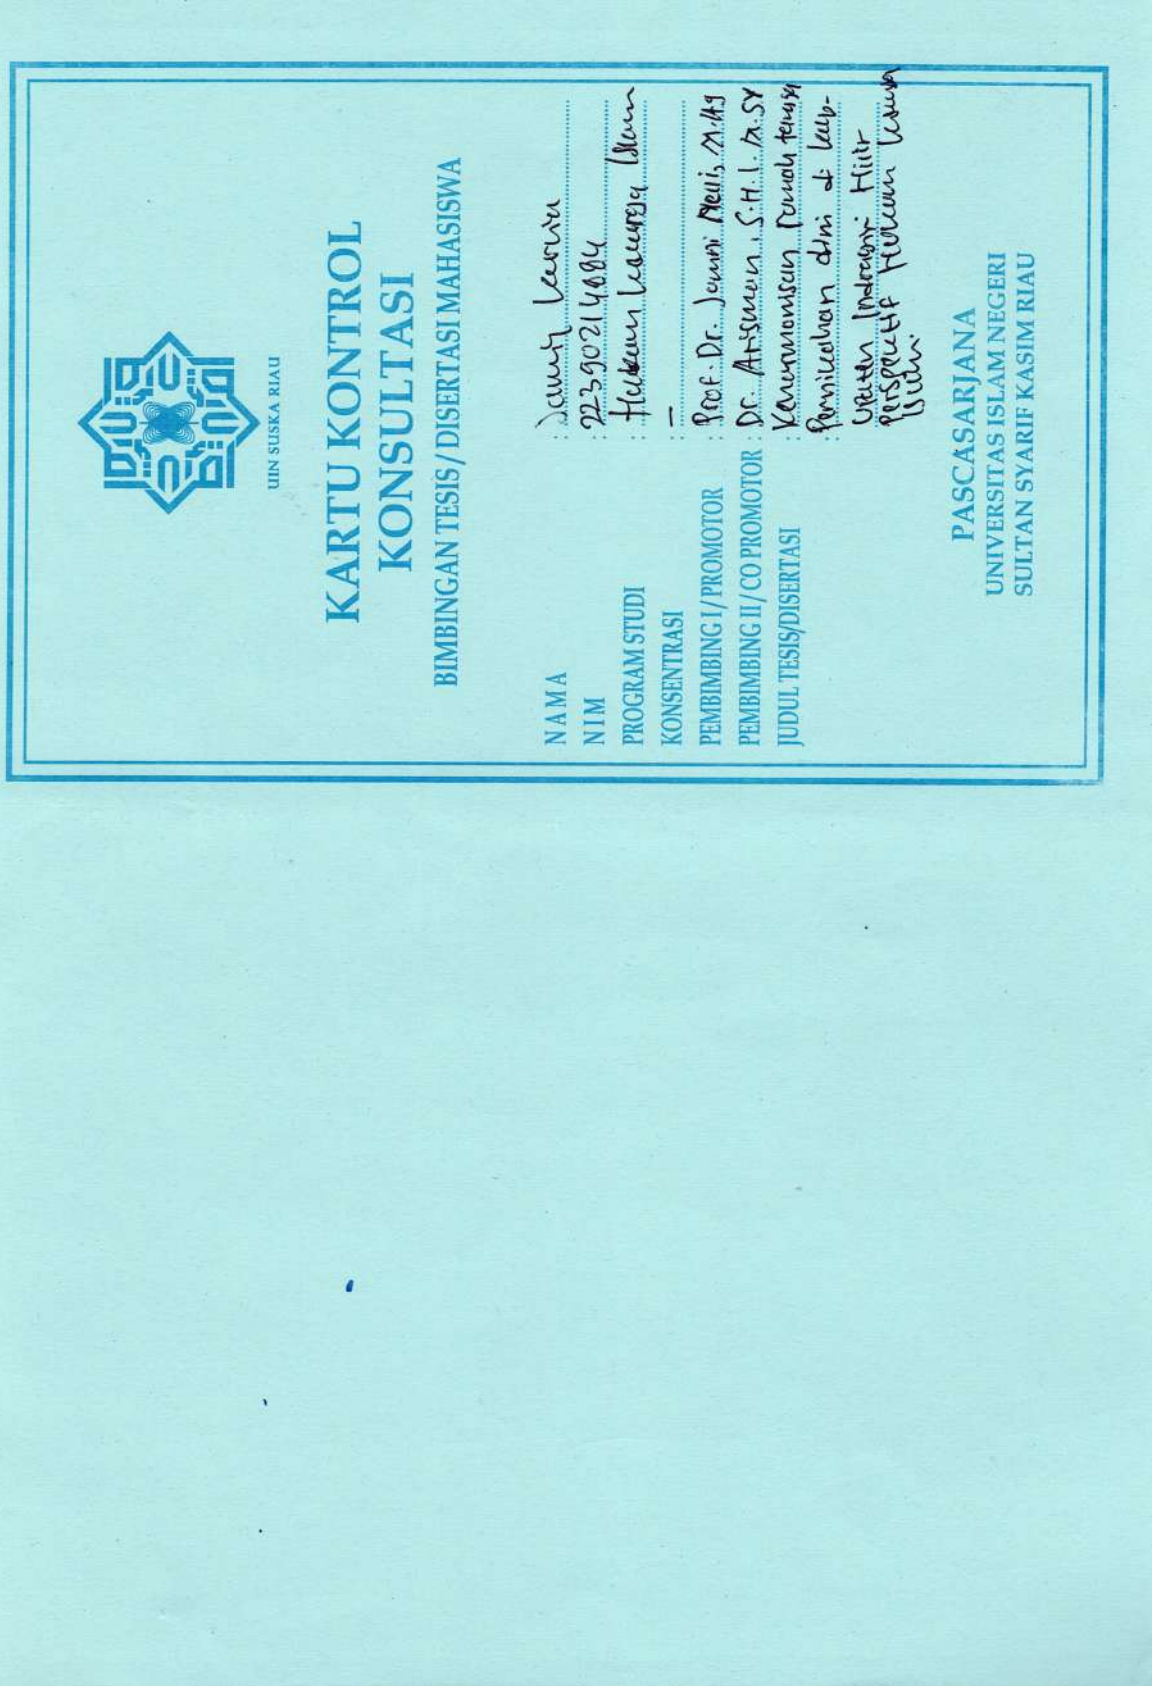 UIN SUSKA RIAU
KARTU KONTROL
KONSULTASI
BIMBINGAN TESIS / DISERTASI MAHASISWA
NAMA :
NIM : 22390214884
PROGRAM STUDI : Hukum Keluarga Islam
KONSENTRASI : –
PEMBIMBING I / PROMOTOR : Prof. Dr. Jamri M.Ag
PEMBIMBING II / CO PROMOTOR : Dr. Arisman, S.H.I, M.SY
JUDUL TESIS/DISERTASI : Keharmonisan rumah tangga
Pernikahan dini di kab-
upaten Indragiri Hilir
Perspektif Hukum keluarga
Islam.
PASCASARJANA
UNIVERSITAS ISLAM NEGERI
SULTAN SYARIF KASIM RIAU